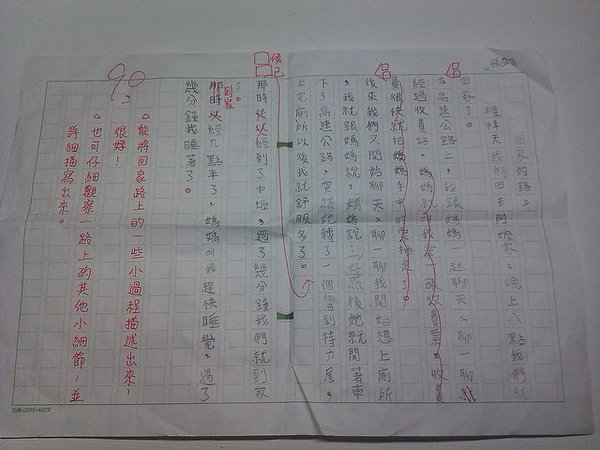 回家的路上
禮拜天我們回去阿嬤家，晚上八點我們就
回家了。
在高速公路上，我跟媽媽一起聊天，聊一聊就
經過收費站，媽媽就叫我拿一張收費票，收費
員很快就把媽媽手中的票抽走了。
後來我們又開始聊天，聊一聊我開始想上廁所
，我就跟媽媽說，媽媽說：然後她就開著車
下了高速公路，突然她轉了一個彎到特力屋，
上完廁所以後我就舒服多了。
候
已
那時以經到了中壢，過了幾分鐘我們就到家
了。
那時以經九點半了，媽媽叫我趕快睡覺，過了
到家
幾分鐘我睡著了。
90
△能將回家路上的一些小過程描述出來，
很好！
△也可仔細觀察一路上的其他小細節，並
詳細描寫出來。
20×20行=400字